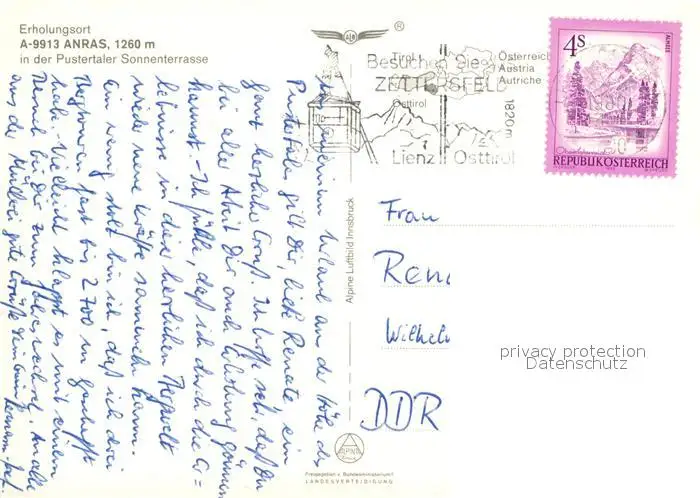 Erholungsort
A-9913 ANRAS, 1260 m
in der Pustertaler Sonnenterrasse
®
Besuchen Sie
ZETTERSFELD
1820m
Lienz Osttirol
Tirol
Osttirol
Österreich
Austria
Autriche
4S
ALMSEE
REPUBLIK ÖSTERREICH
Alpine Luftbild Innsbruck
Urlaub an der Höhe des
Pustertals gilt Dir, liebe Renate, ein
ganz herzlicher Gruß. Ich hoffe sehr, daß Du
bei aller Arbeit Dir auch Erholung gönnen
kannst. - Ich fühle, daß ich durch die Er=
lebnisse in dieser herrlichen Bergwelt
wieder neue Kräfte sammeln kann.
Ein wenig stolz bin ich, daß ich drei
Bergtouren fast bis 2700 m geschafft
habe. Vielleicht klappt es mit einem
bei Dir zum Jahreswechsel. An alle
aus der Müllerei gute Grüße
Frau
Ren
Wilhelm
DDR
ALPINA
Freigegeben v. Bundesministerium f.
LANDESVERTEIDIGUNG
privacy protection
Datenschutz